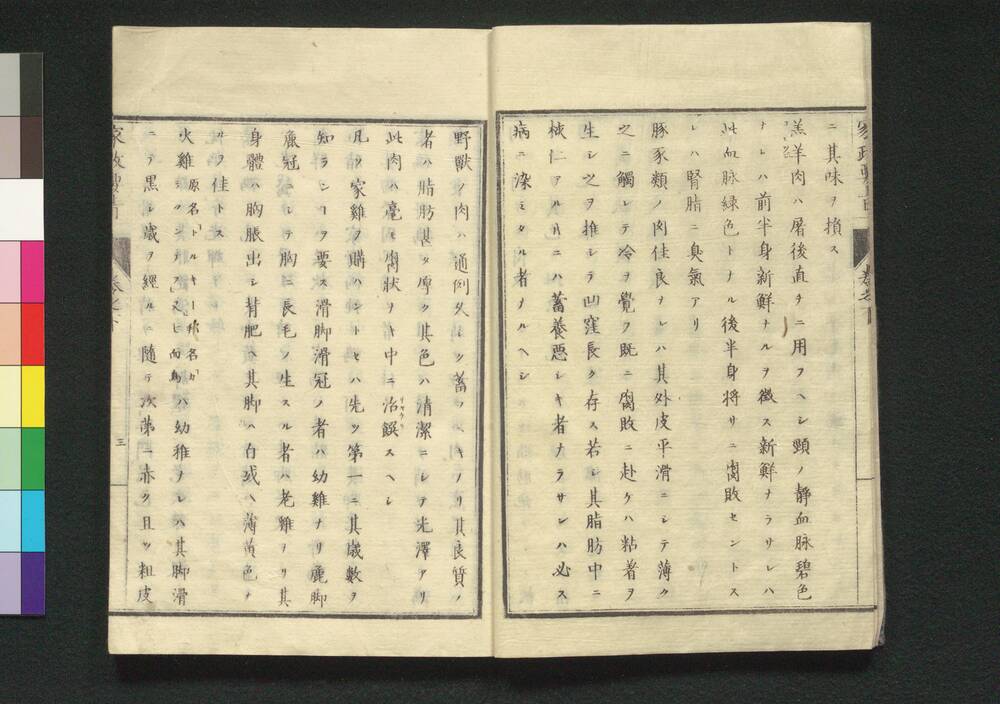 ニ其味ヲ損ス
羔羊肉ハ屠後直チニ用フヘシ頸ノ靜血脉碧色
ナレハ前半身新鮮ナルヲ徴ス新鮮ナラサレハ
此血脉緑色トナル後半身将サニ腐敗セントス
レハ腎脂ニ臭氣アリ
豚豕類ノ肉佳良ナレハ其外皮平滑ニシテ薄ク
之ニ觸レテ冷ヲ覺フ既ニ腐敗ニ赴ケハ粘着ヲ
生シ之ヲ推シテ凹窪長ク存ス若シ其脂肪中ニ
核仁アルハ蓄養悪シキ者ナラサレハ必ス
病ニ染ミタル者ナルヘシ
野獸ノ肉ハ通例久シク蓄フヘキナリ其良質ノ
者ハ脂肪甚タ厚ク其色ハ清潔ニシテ光澤アリ
此肉ハ毫モ腐状ヲキ中ニ治饌スヘシ
凡ソ家雞ヲ購ハントセハ先ツ第一ニ其歳數ヲ
知ランコヲ要ス滑脚滑冠ノ者ハ幼雞ナリ麁脚
麁冠ニシテ胸ニ長毛ノ生スル者ハ老雞ナリ其
身體ハ胸脹出シ背肥ヘ其脚ハ白或ハ薄黄色ナ
ルヲ佳トス
火雞 原名トルキー 秼名カラクン ハ幼稚ナレハ其脚滑
ニテ黒シ歳ヲ經ルニ隨テ次第ニ赤ク且ツ粗皮
卷之下
三